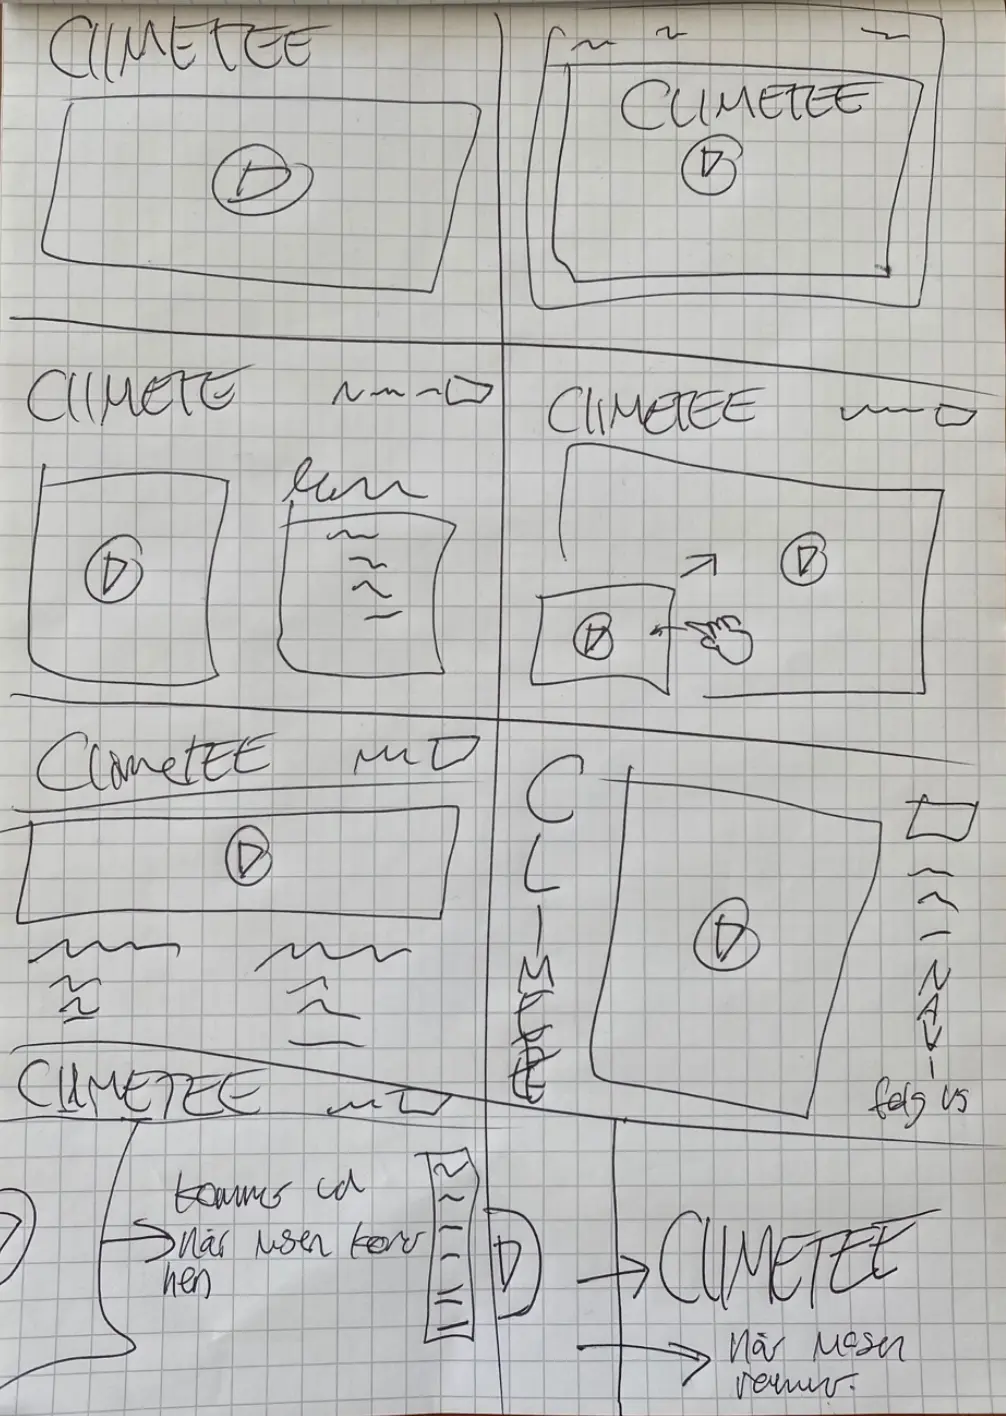 CLIMETEE
CLIMETEE
CLIMETE
CLIMETEE
ClimeTEE
C
L
I
NAV
følg us
CLIMETEE
kommer ud
når musen
hen
CLIMETEE
når musen